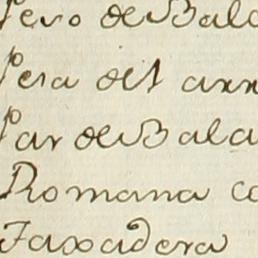 Pero de Bala
Pera del arr
Par de Bala
Romana co
Faxadera